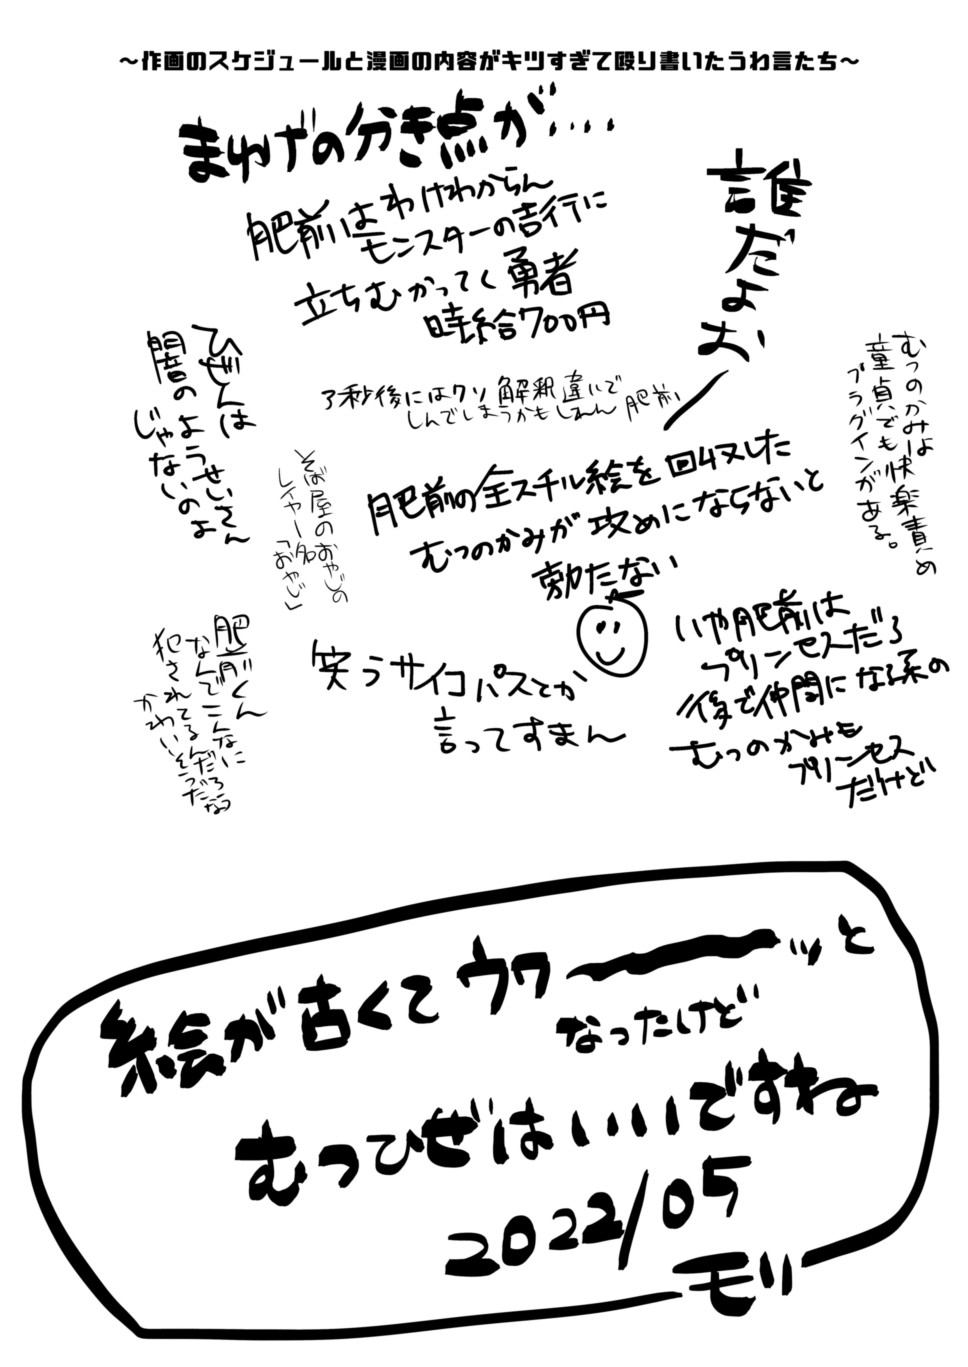 ～作画のスケジュールと漫画の内容がキツすぎて殴り書いたうわ言たち～
まゆげの分き点が‥‥
肥前はわけわからん
モンスターの吉行に
立ちむかってく勇者
時給700円
誰だよお
ひぜんは
闇のようせいさん
じゃないのよ
3秒後にはクソ解釈違いで
しんでしまうかもしれん 肥前
むつのかみは
童貞でも快楽責め
プラグインがある。
そば屋のおやじの
レイヤー名
「おやじ」
肥前の全スチル絵を回収した
むつのかみが攻めにならないと
勃たない
肥前くん
なんでこんなに
犯されてるんだろうな
かわいそうだな
笑うサイコパスとか
言ってすまん
いや肥前は
プリンセスだろ
後で仲間になる系の
むつのかみも
プリンセス
だけど
絵が古くてウワーーッと
なったけど
むつひぜはいいですね
2022/05
モリ